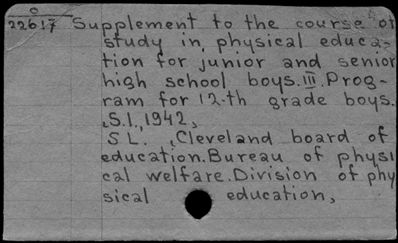 o
22617 Supplement to the course of
study in physical educa-
tion for junior and senior
high school boys. III. Prog-
ram for 12-th grade boys.
,S.l.,1942,
SL. ,Cleveland board of
education.Bureau of physi
cal welfare.Division of phy
sical education,